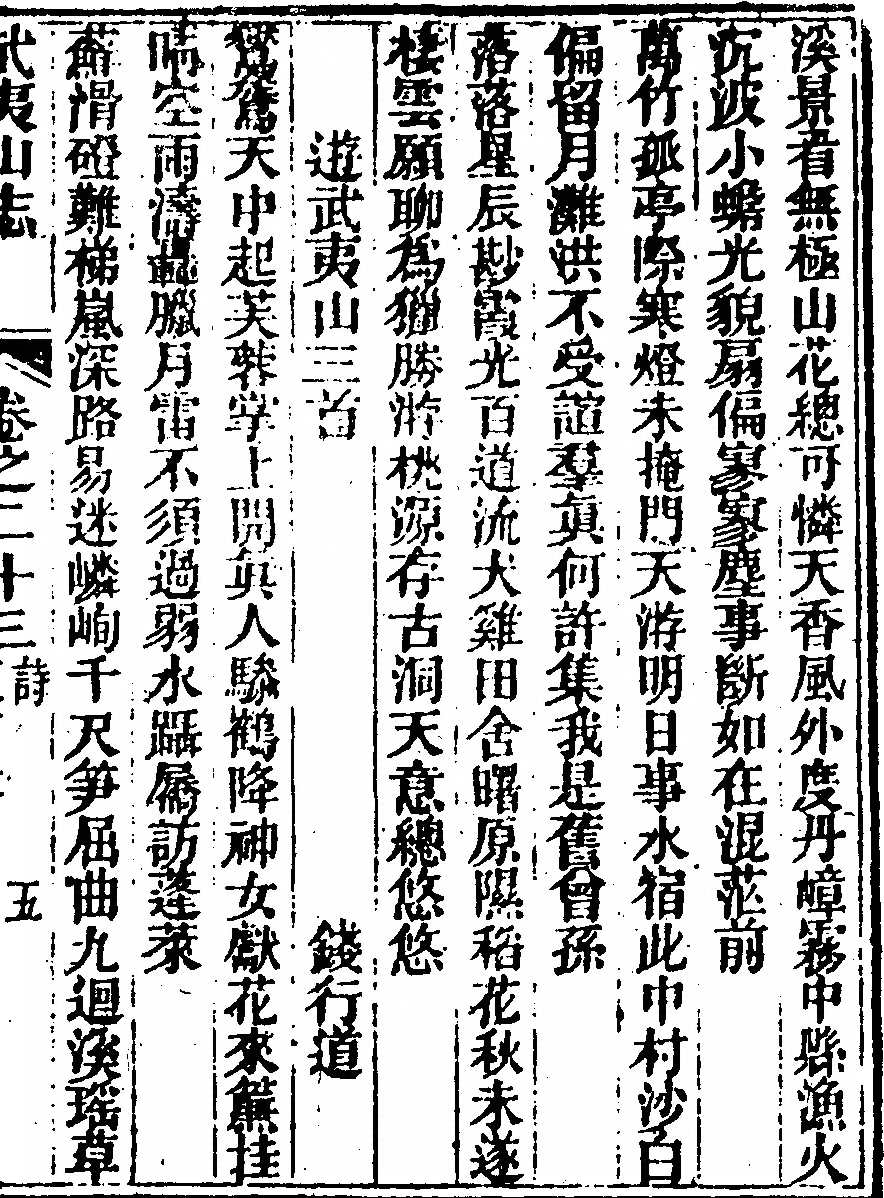 溪景看無極山花總可憐天香風外度丹嶂霧中縣漁火
沉波小蟾光貌扇偏寥寥塵事斷如在混茫前
萬竹孤亭際寒燈未掩門天游明日事水宿此中村沙白
偏留月灘洪不受諠羣眞何許集我是舊曾孫
落落星辰尠霞光百道流犬雞田舍曙原隰稻花秋未遂
棲雲願聊爲獵勝游桃源存古洞天意總悠悠
遊武夷山三首 錢行道
鷲天中起芙蓉掌上開眞人驂鶴降神女獻花來挂
晴空雨濤轟臘月雷不須過弱水躡屩訪蓬萊
蘚滑磴難梯嵐深路易迷嶙峋千尺笋屈曲九迴溪瑤草
武夷山志 卷之二十三 詩 五